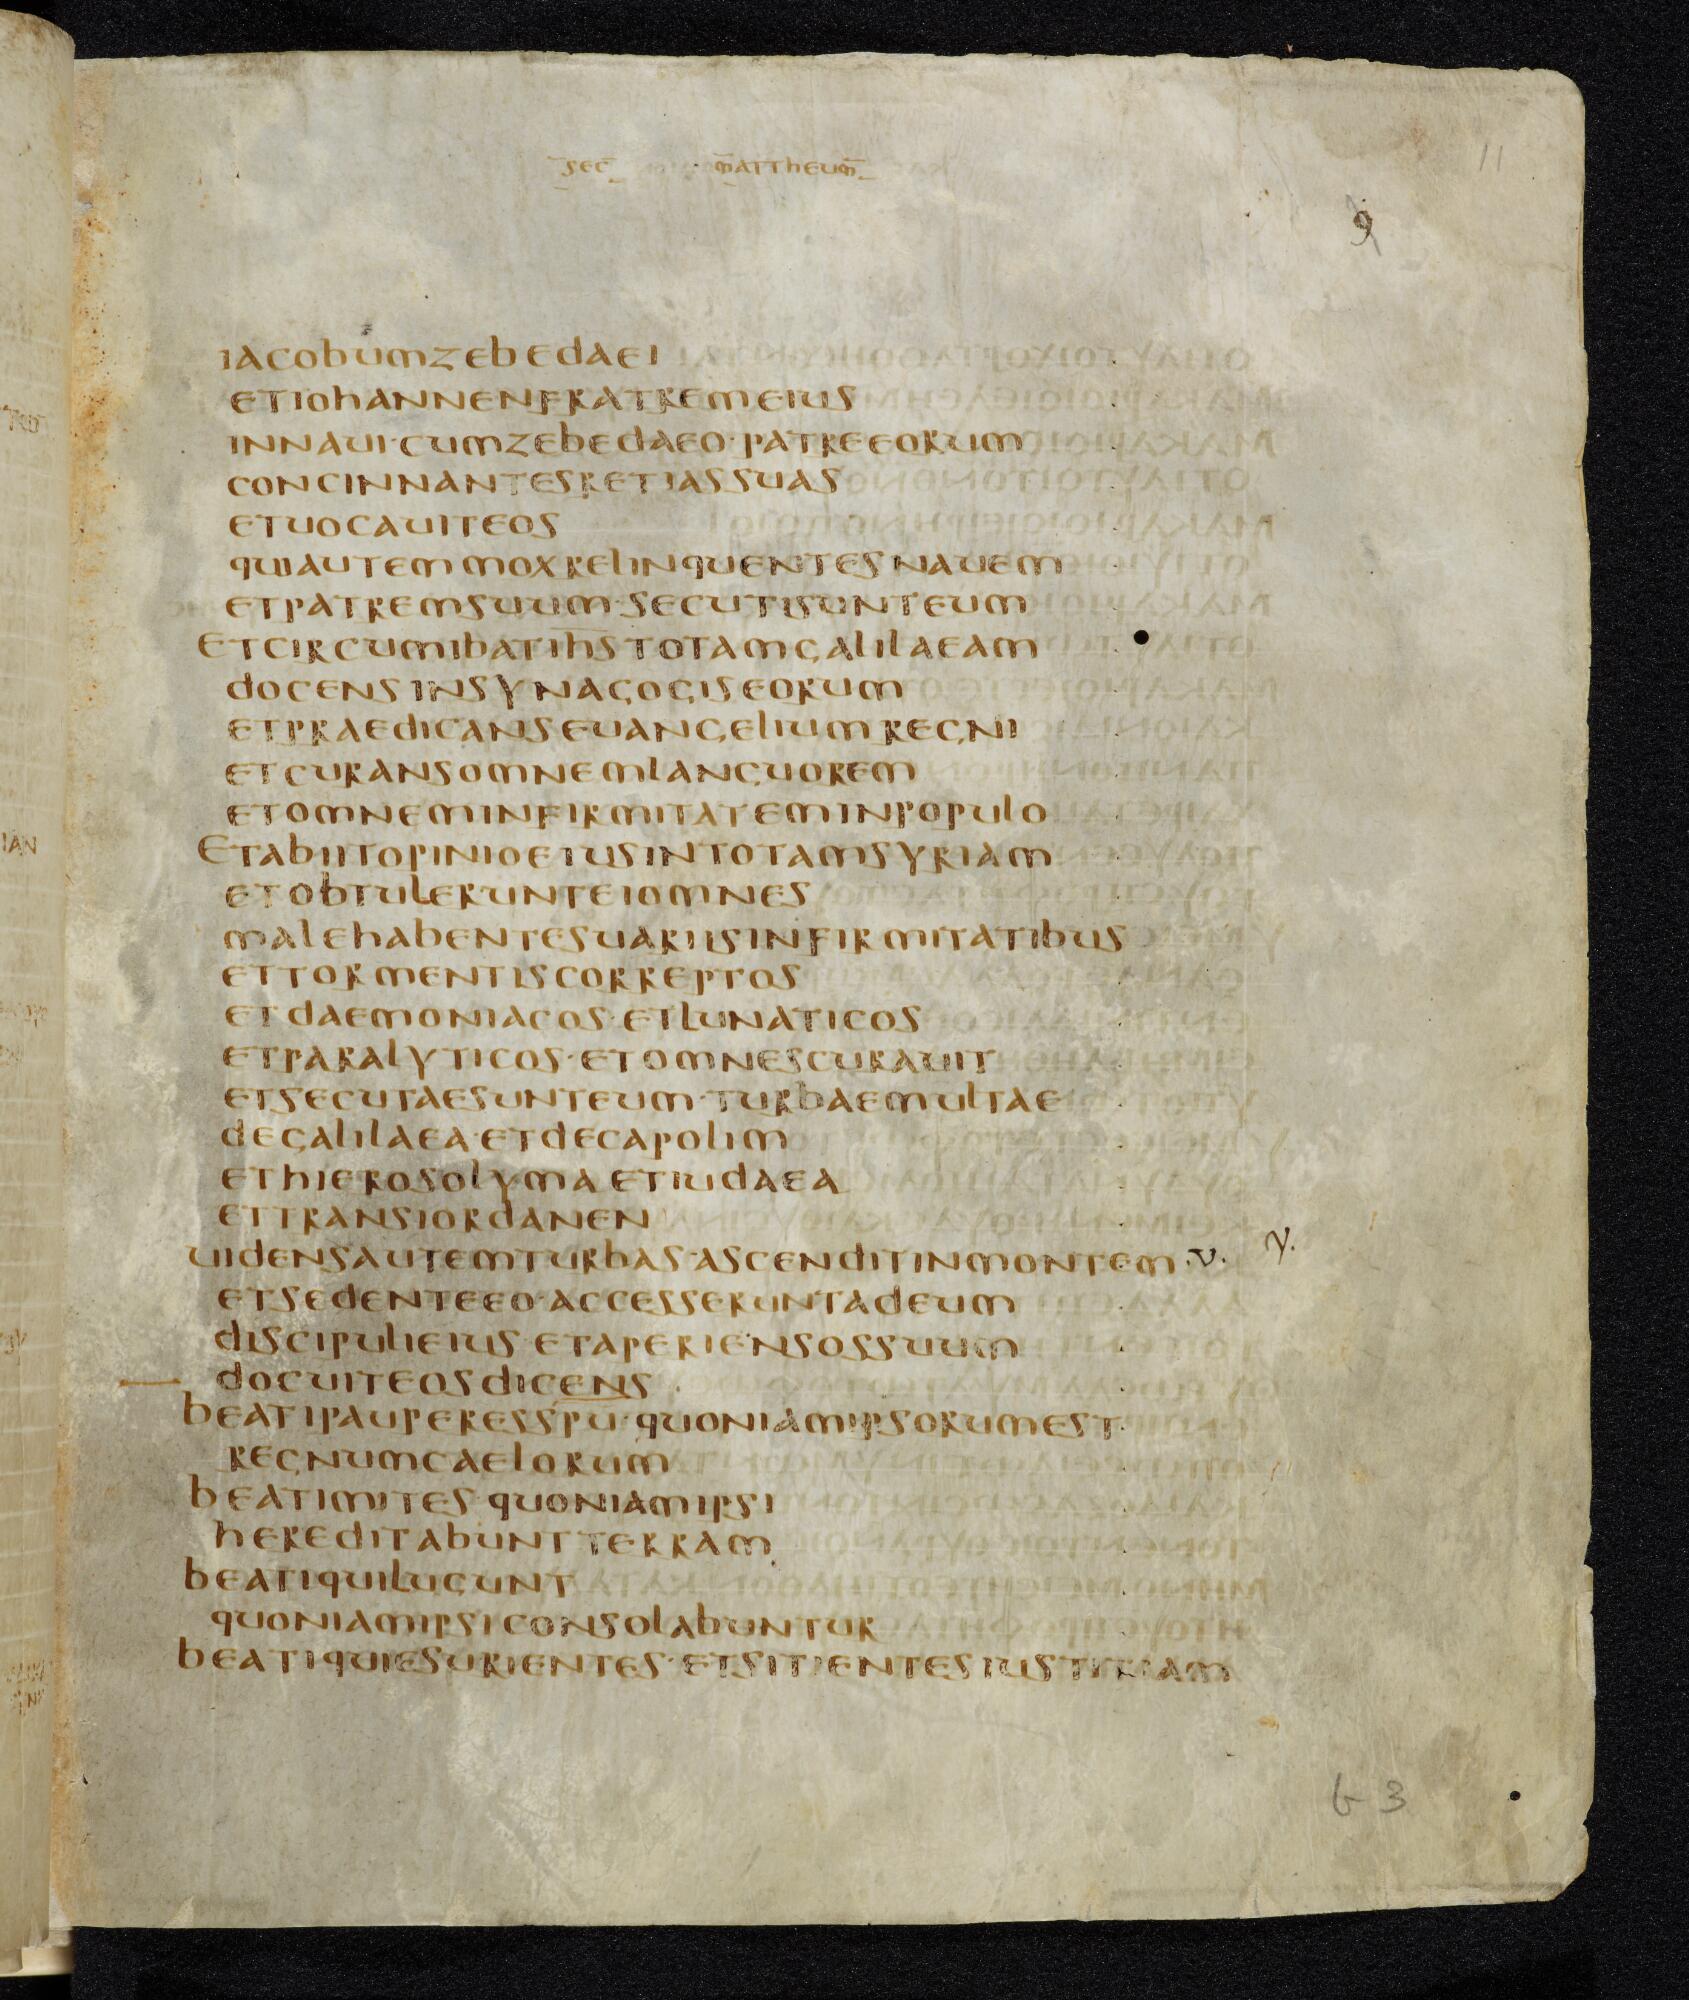 sec mattheum
11
9
iacobum zebedaei
et iohannen fratrem eius
in naui · cum zebedaeo · patre eorum
concinnantes retias suas
et uocauit eos
qui autem mox relinquentes nauem
et patrem suum · secuti sunt eum
et circumibat ih̅s totam galilaeam
docens in synagogis eorum
et praedicans euangelium regni
et curans omnem languorem
et omnem infirmitatem in populo
et abiit opinio eius in totam syriam
et obtulerunt ei omnes
male habentes uariis infirmitatibus
et tormentis correptos
et daemoniacos · et lunaticos
et paralyticos · et omnes curauit
et secutae sunt eum · turbae multae
de galilaea · et decapolim
et hierosolyma et iudaea
et trans iordanen
uidens autem turbas · ascendit in montem .v. v.
et sedente eo · accesserunt ad eum
discipuli eius · et aperiens os suum
docuit eos dicens
beati pauperes sp̅u · quoniam ipsorum est
regnum caelorum
beati mites · quoniam ipsi
hereditabunt terram
beati qui lugunt
quoniam ipsi consolabuntur
beati qui esurientes · et sitientes iustitiam
b 3